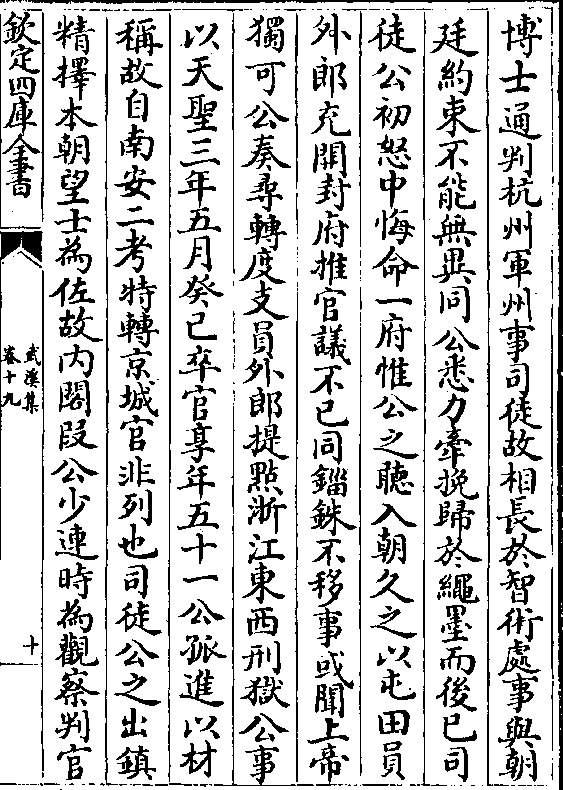 博士通判杭州軍州事司徒故相長於智術處事與朝
廷約束不能無異同公悉力牽挽歸於繩墨而後已司
徒公初怒中悔命一府惟公之聽入朝久之以屯田員
外郎充開封府推官議不已同錙銖不移事或聞上帝
獨可公奏尋轉度支員外郎提點浙江東西刑獄公事
以天聖三年五月癸已卒官享年五十一公孤進以材
稱故自南安二考特轉京城官非列也司徒公之出鎮
精擇本朝望士為佐故内閣段公少連時為觀察判官
欽定四庫全書
武溪集
卷十九
十